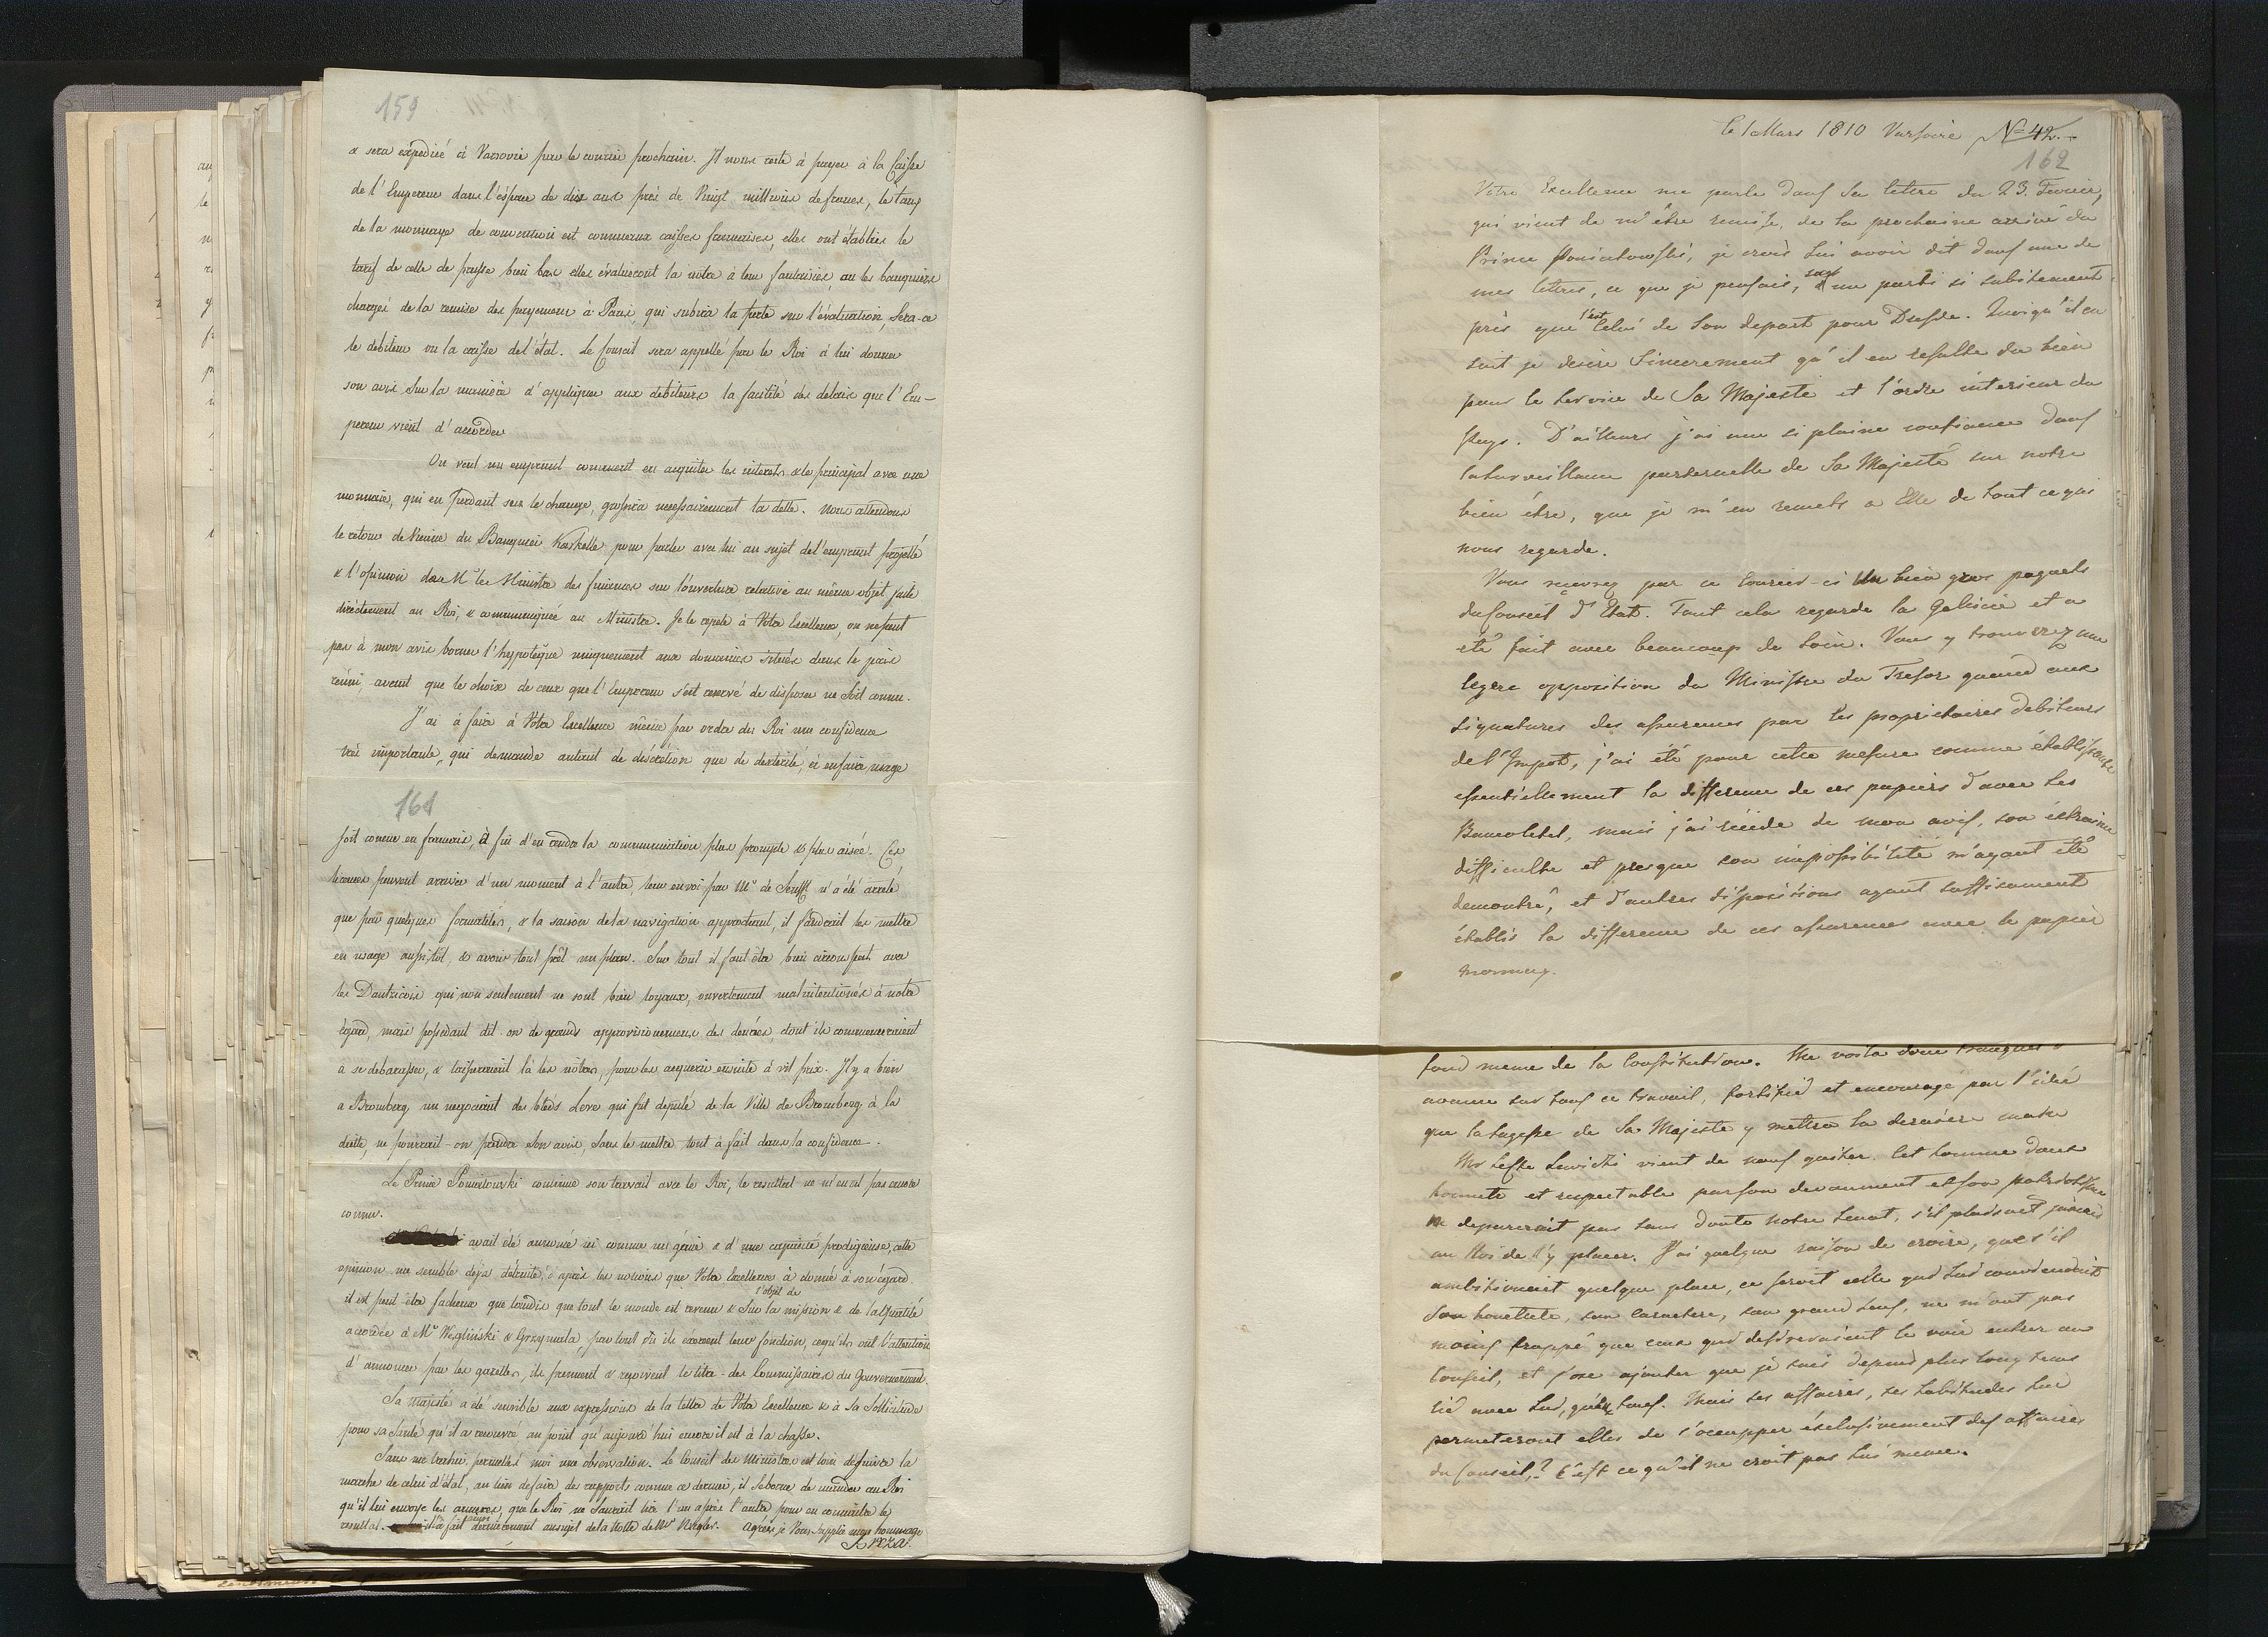 159
& sera expédié à Varsovie par le courier prochain. Il nous reste à payer à la Caisse
de l'Empereur dans l'éspace de dix ans près de Vingt millions de francs, le tarif
de la monnaye de convention est connu aux caisses françaises, elles ont établies le
tarif de celle de prusse bien bas elles évalueront la nôtre à leur fantaisie, ou les banquiers
chargés de la remise des payemens à Paris, qui subira la perte sur l'évaluation, Sera-ce
le debiteur ou la caisse de l'état. Le Conseil sera appellé par le Roi à lui donner
son avis Sur la manière d'appliquer aux debiteurs la facilité des délais que l'Em-
pereur vient d'accorder
On veut un emprunt comment en acquiter les interets & le principal avec une
monnaie, qui en perdant sur le change, grossira necessairement la dette. Nous attendons
le retour de Vienne du Banquier Kaskelle pour parler avec lui au sujet de l'emprunt projetté
& l'opinion de M. le Ministre des finances sur l'ouverture relative au même objet, faite
directement au Roi, & communiquée au Ministre. Je le repete à Votre Excellence, on ne peut
pas à mon avis borner l'hypoteque uniquement aux domaines situés dans le païs
réuni, avant que le choix de ceux que l'Empereur s'est reservé de disposer ne Soit connu.
J'ai à faire à Votre Excellence même par ordre du Roi une confidence
très importante, qui demande autant de discrétion que de dexterité, à en faire usage
161
soit connu en francais, à fin d'en rendre la communication plus prompte & plus aisée. Ces
licences peuvent arriver d'un moment à l'autre, leur envoi par Mr de Senfft n'a été arreté
que par quelques formalités, & la saison de la navigation approchant, il faudrait les mettre
en usage aussitôt, & avoir tout prêt un plan. Sur tout il faut être bien circonspect avec
les Dantzicois qui non seulement ne sont bien loyaux, ouvertement malintentionés à notre
égard, mais possedant dit-on de grands approvisionnemens des denrées, dont ils commenceraient
à se debarasser, & laisseraient là les nôtres, pour les acquerir ensuite à vil prix. Il y a bien
a Bromberg un negociant des bleds Leve qui fut deputé de la Ville de Bromberg à la
diette, ne pourrait-on prendre Son avis, Sans le mettre tout à fait dans la confidence.
Le Prince Poniatowski continue son travail avec le Roi, le resultat ne m'en est pas encore
connu.
avait été annoncé ici comme un génie & d'une capacité prodigieuse, cette
opinion me semble deja détruite, d'après les notions que Votre Excellence a donné à son egard.
il est peut-être facheux que tandis que tout le monde est revenu & Sur l'objet de la mission & de la qualité
accordée à Mr Węgliński & Grzymała, par tout où ils exercent leur fonction, ce qu'ils ont l'attention
d'annoncer par les gazettes, ils prennent & reçoivent le titre des Commissaires du Gouvernement.
Sa Majesté a été sensible aux expressions de la lettre de Votre Excellence & à Sa Sollicitude
pour sa Santé qu'il a recouvré au point qu'aujourd'hui encore il est à la chasse.
Sans me trahir, permettés moi une observation. Le Conseil des Ministres est loin de suivre la
marche de celui d'état, au lieu de faire des rapports comme ce dernier, il Se borne de mander au Roi
qu'il lui envoye les annexes, que le Roi ne Saurait lire l'un après l'autre pour en connaitre le
resultat. il a fait ainsi dernièrement au sujet de la Notte de Mr Niegler. Agréés je Vous Supplie mes hommages
Breza
le 1 Mars 1810 Varsovie No 42.
162
Votre Excellence me parle dans Sa lettre du 23. Fevrier,
qui vient de m'être remise, de la prochaine arrivé du
Prince Poniatowski, je crois Lui avoir dit dans une de
mes lettres, ce que je pensais, sur une parti si subitement
pris que l'est Celui de Son depart pour Dresde. Quoiqu'il en
soit je desire Sincerement qu'il en resulte du bien
pour le service de Sa Majesté et l'ordre interieur du
pays. D'ailleurs j'ai une si pleine confiance dans
la surveillance paternelle de Sa Majesté sur notre
bien être, que je m'en remets a Elle de tout ce qui
nous regarde.
Vous recevrez par ce Courier-ci Un bien gros paquets
du Conseil d'Etat. Tout cela regarde la Galicie et a
été fait avec beaucoup de Soin. Vous y trouverez une
legere opposition du Ministre du Tresor quand aux
signatures des assurances par les proprietaires debiteurs
de l'Impot, j'ai été pour cette mesure comme établissante
essentiellement la difference de ces papiers d'avec les
Bancolzetel, mais j'ai cédé de mon avis, son extreme
difficulté et presque son impossibilité m'ayant été
demontré, et d'autres dispositions ayant suffisament
établis la difference de ces assurances avec le papier
monnay.
fond meme de la Constitution. Me voila donc tranquil
avance sur tout ce travail, fortifié et encouragé par l'idée
que la sagesse de Sa Majesté y mettra la derniere main
Mr Lewicki vient de nous quiter. Cet homme doux
honnete et respectable par son devoument et son patriotisme
ne depareroit pas sans doute notre Senat, s'il plaisoit jamais
au Roi de l'y placer. J'ai quelque raison de croire, que s'il
ambitionoit quelque place, ce seroit celle qui Lui conviendroit
Son honetteté, son caractere, son grand sens, ne m'ont pas
moins frappé que ceux qui desireroient le voir entrer au
Conseil, et j'ose ajouter que je suis depuis plus long tems
lié avec Lui, qu'eux tous. Mais Ses affaires, ses habitudes Lui
permeteront elles de s'occupper exclusivement des affaires
du Conseil,? C'est ce qu'il ne croit pas Lui meme.